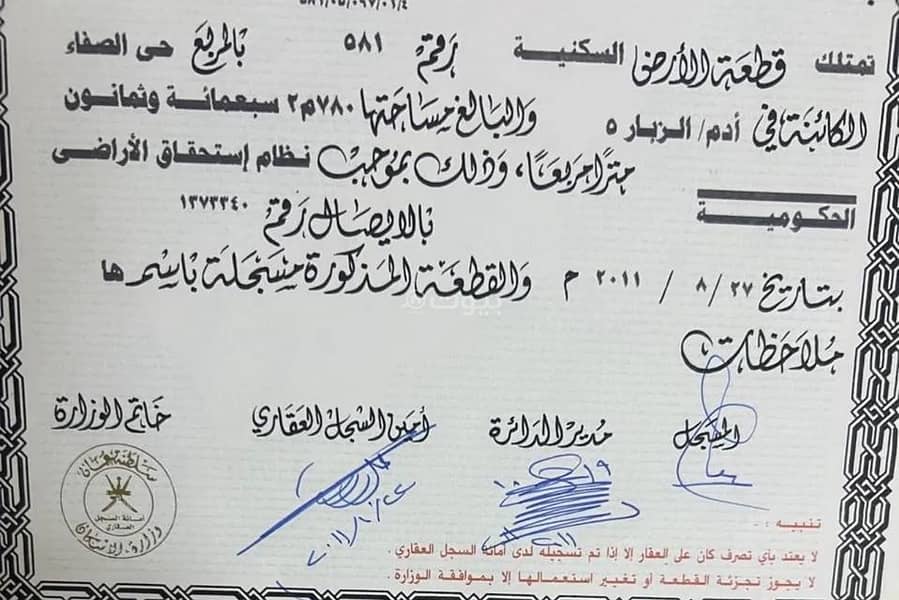 تمتلك قطعة الأرض السكنية رقم ٥٨١ بالمربع حى الصفاء
الكائنة في أدم/ الزبار ٥ والبالغ مساحتها ٧٨٠م٢ سبعمائة وثمانون
متراً مربعاً، وذلك بموجب نظام إستحقاق الأراضى
الحكومية بالايصال رقم ١٣٧٣٣٤٠
بتاريخ ٢٧ / ٨ / ٢٠١١ م والقطعة المذكورة مسجلة باسمها
بيوت
ملاحظات
المسجل مدير الدائرة أمين السجل العقاري خاتم الوزارة
سلطنة عمان
أمانة السجل
العقاري
وزارة الاسكان
تنبيه :-
لا يعتد بأي تصرف كان على العقار إلا إذا تم تسجيله لدى أمانة السجل العقاري .
لا يجوز تجزئة القطعة أو تغيير استعمالها إلا بموافقة الوزارة .